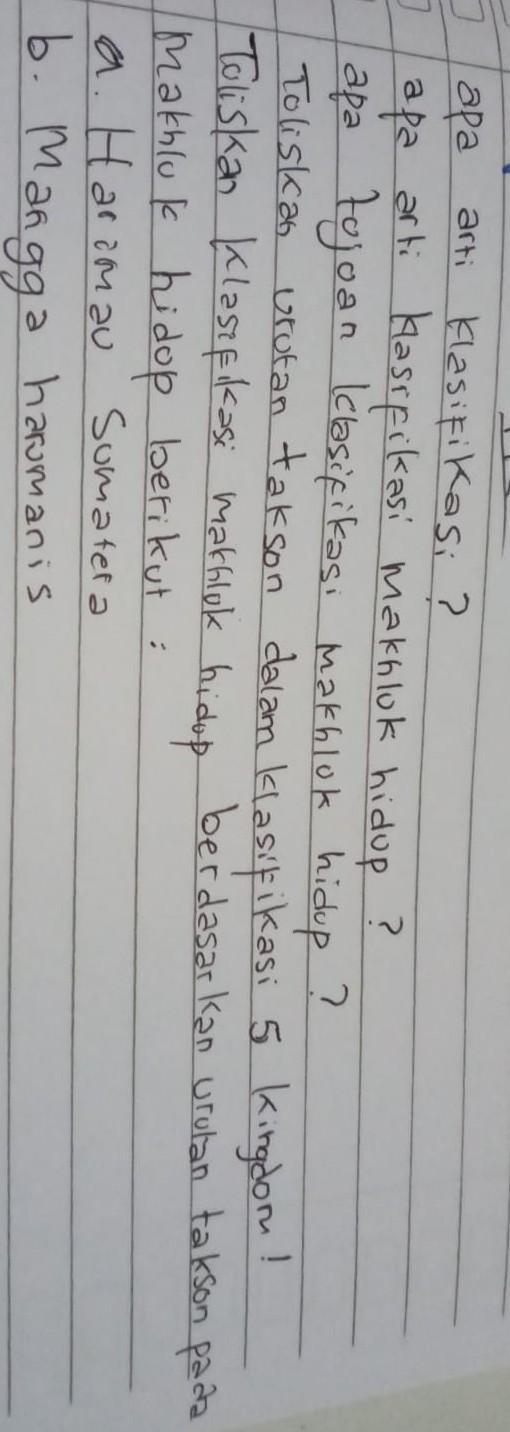 apa arti klasifikasi ?
apa arti klasifikasi makhluk hidup ?
apa tujuan klasifikasi makhluk hidup ?
Tuliskan urutan takson dalam klasifikasi 5 kingdom !
Tuliskan klasifikasi makhluk hidup berdasarkan urutan takson pada
makhluk hidup berikut :
a. Harimau Sumatera
b. Mangga harumanis